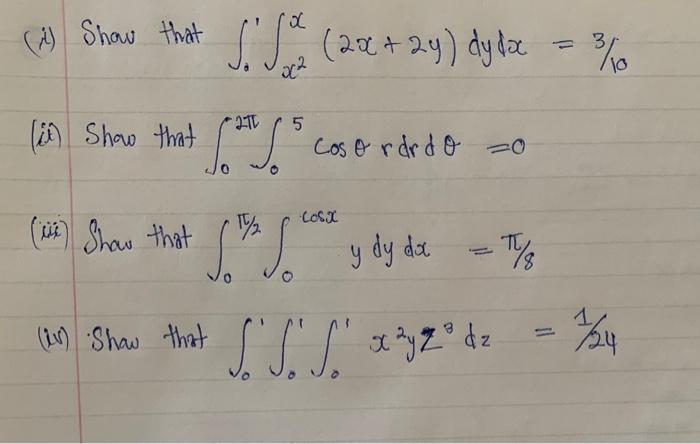 (i) Show that ∫₀¹ ∫ₓ²ˣ (2x + 2y) dy dx = 3/10
(ii) Show that ∫₀²π ∫₀⁵ cos θ r dr d θ = 0
(iii) Show that ∫₀π/2 ∫₀cosx y dy dx = π/8
(iv) Show that ∫₀¹ ∫₀¹ ∫₀¹ x²yz³ dz = 1/24